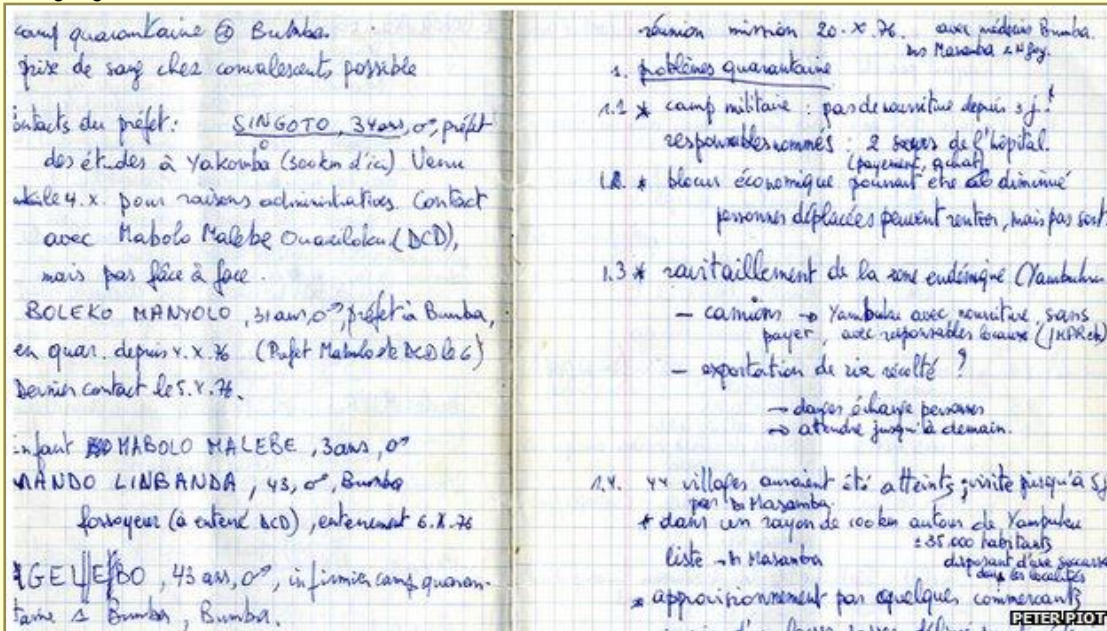 camp quarantaine Bumba.
prise de sang chez convalescents possible
contacts du préfet: SINGOTO, 34 ans, ♂, préfet
des études à Yakomba (300km d'ici) Venu
le 4.X. pour raisons administratives. Contact
avec Mabolo Malebe (DCD),
mais pas fâce à face.
BOLEKO MANYOLO, 31 ans, ♂, préfet à Bumba,
en quar. depuis X.76 (Préfet Mabolo DCD le 6)
Dernier contact le 5.X.76.
enfant MABOLO MALEBE, 3 ans, ♂
MANDO LINBANDA, 43, ♂, Bumba
fossoyeur (à enterré DCD), enterement 6.X.76
, 43 ans, ♂, infirmier camp quaran-
taine à Bumba, Bumba.
réunion mission 20.X.76. avec médecins Bumba.
Masamba
1. problèmes quarantaine
1.1 * camp militaire : pas de nourriture depuis 3 j.!
responsables nommés : 2 soeurs de l'hôpital.
(payement, achat)
1.2. * blocus économique pourrait être diminué
personnes déplacées peuvent rentrer, mais pas sortir
1.3 * ravitaillement de la zone endémique (Yambuku
- camions → Yambuku avec nourriture, sans
payer, avec responsables locaux
- exportation de riz récolté ?
→ danger échange personnes
→ attendre jusqu'à demain.
1.4. 44 villages auraient été atteints; visite jusqu'à
par Dr Masamba
* dans un rayon de 100 km autour de Yambuku
± 35.000 habitants
liste → Dr Masamba
disposant d'une
dans les localités
* approvisionnement par quelques commerçants
PETER PIOT